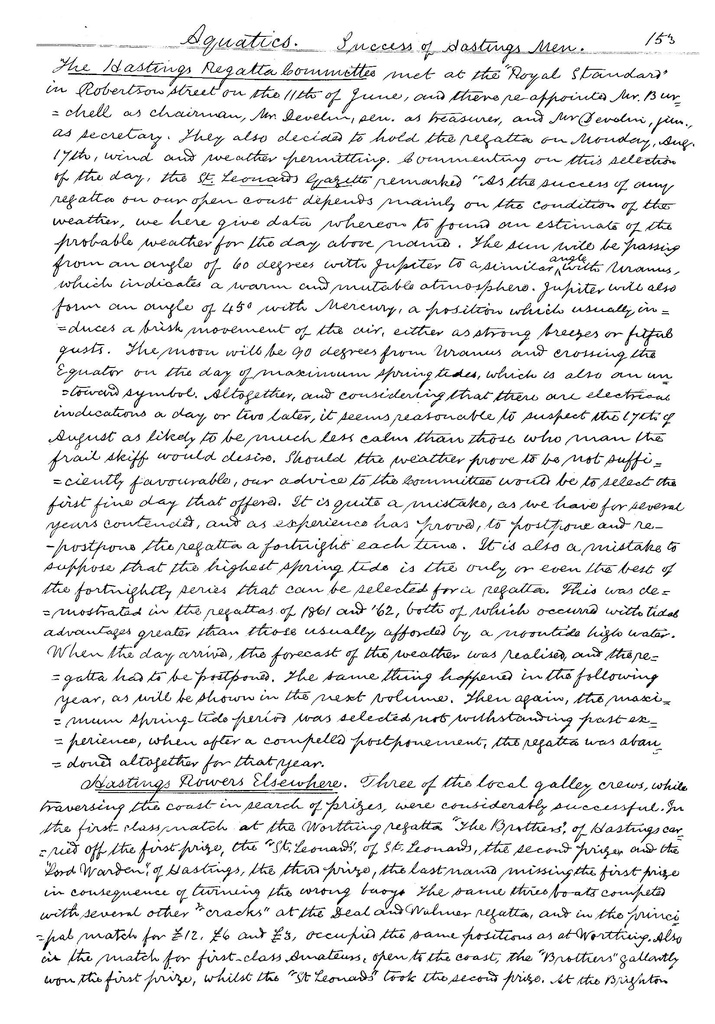 Aquatics. Success of Hastings Men. 153
The Hastings Regatta Committee met at the "Royal Standard"
in Robertson street on the 11th of June, and there re-appointed Mr. Bur=
=chell as chairman, Mr. Devolin, sen. as treasurer, and Mr Devolin, jun.,
as secretary. They also decided to hold the regatta on Monday, Aug.
17th, wind and weather permitting. Commenting on this selection
of the day, the St. Leonards Gazette remarked "As the success of any
regatta on our open coast depends mainly on the condition of the
weather, we here give data whereon to found an estimate of the
probable weather for the day above name. The sun will be passing
from an angle of 60 degrees with Jupiter to a similar angle with Uranus,
which indicates a warm and mutable atmosphere. Jupiter will also
form an angle of 45° with Mercury, a position which usually in=
=duces a brisk movement of the air, either as strong breezes or fitful
gusts. The moon will be 90 degrees from Uranus and crossing the
Equator on the day of maximum spring tides, which is also an un
=toward symbol. Altogether, and considering that there are electrical
indications a day or two later, it seems reasonable to suspect the 17th of
August as likely to be much less calm than those who man the
frail skiff would desire. Should the weather prove to be not suffi=
=ciently favourable, our advice to the committee would be to select the
first fine day that offered. It is quite a mistake, as we have for several
years contended, and as experience has proved, to postpone and re-
-postpone the regatta a fortnight each time. It is also a mistake to
suppose that the highest spring tide is the only or even the best of
the fortnightly series that can be selected for a regatta. This was de=
=mostrated in the regattas of 1861 and '62, both of which occurred with tidal
advantages greater than those usually afforded by a noontide high water.
When the day arrived, the forecast of the weather was realised, and the re=
=gatta had to be postponed. The same thing happened in the following
year, as will be shown in the next volume. Then again, the maxi=
=mum spring-tide period was selected not withstanding past ex=
=perience, when after a compelled postponement, the regatta was aban
=doned altogether for that year.
Hastings Rowers Elsewhere. Three of the local galley crews, while
traversing the coast in search of prizes, were considerably successful. In
the first-class match at the Worthing regatta "The Brothers", of Hastings car
=ried off the first prize, the "St. Leonads", of St. Leonards, the second prize and the
"Lord Warden", of Hastings, the third prize, the last name missing the first prize
in consequence of turning the wrong buoy. The same three boats competed
with several other "cracks" at the Deal and Walmer regatta, and in the princi
=pal match for £12, £6 and £3, occupied the same positions as at Worthing. Also
in the match for first-class Amateurs, open to the coast, the "Brothers" gallantly
won the first prize, whilst the "St Leonads" took the second prize. At the Brighton